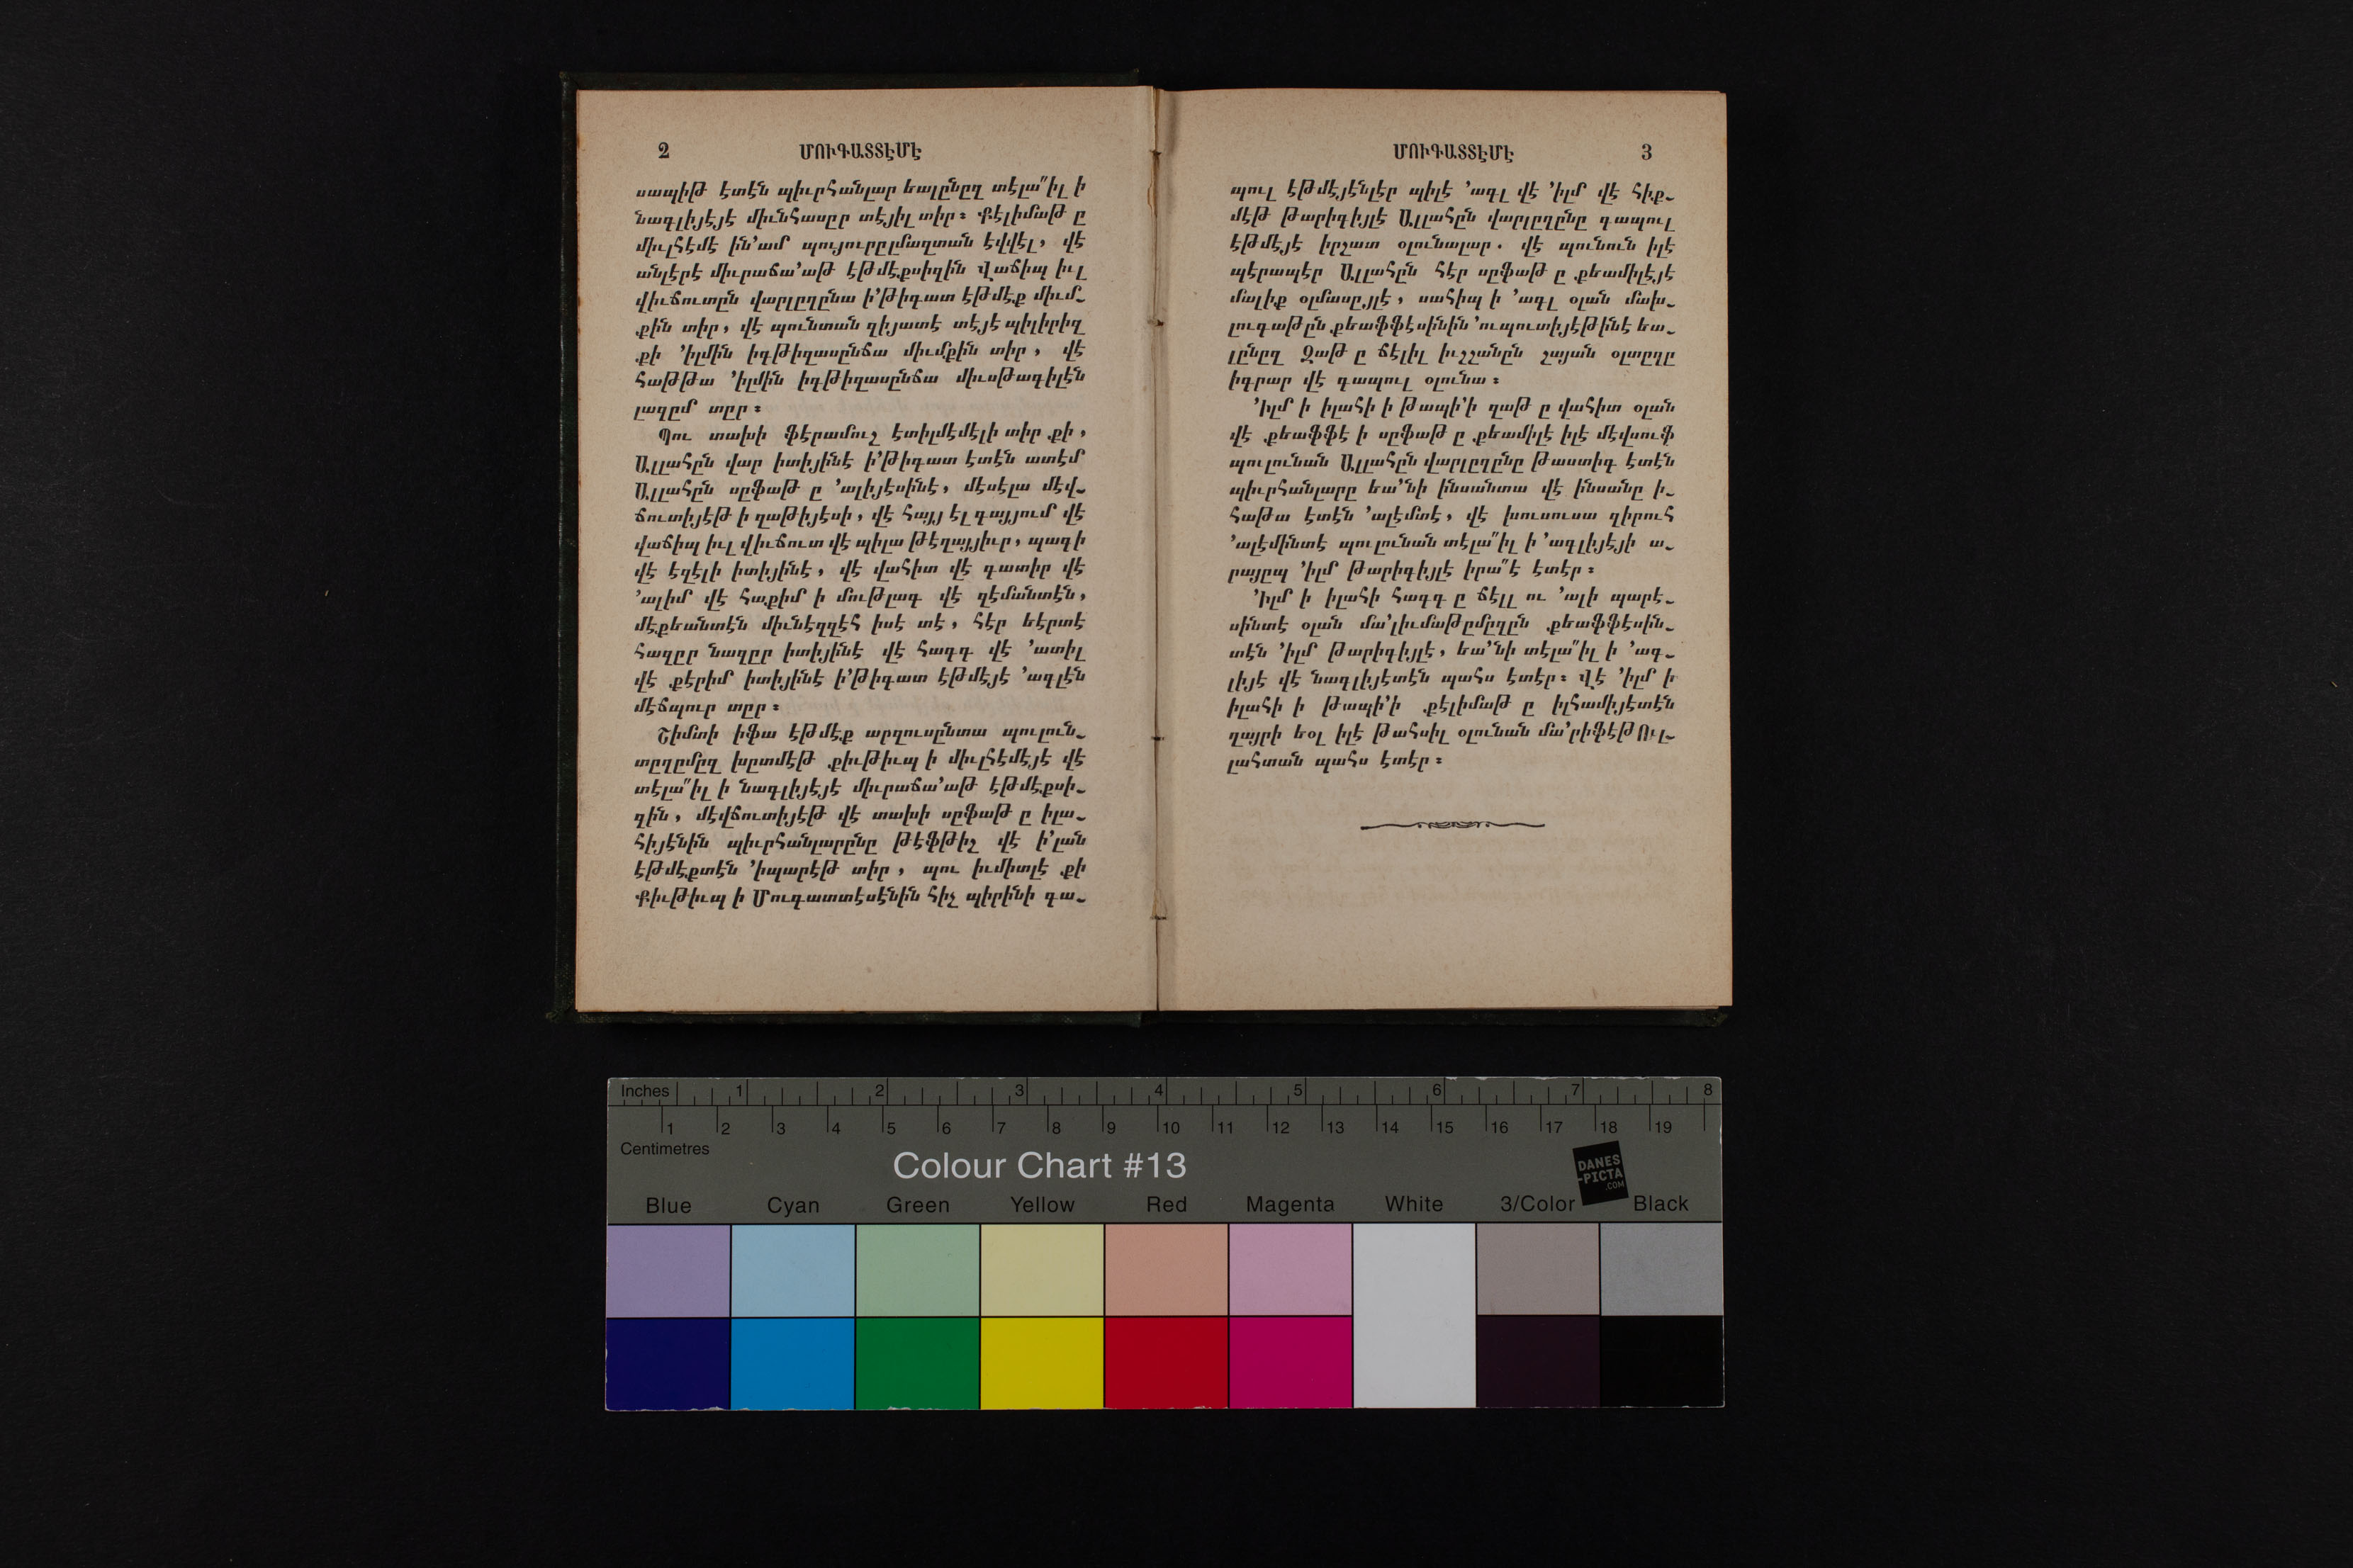 2 ՄՈՒԳԱՏՏԷՄԷ
սապիթ էտէն պիւրհանլար եալընըզ տէլա՞իլ ի
նագլիյէյէ միւնհասըր տէյիլ տիր։ Քէլիմաթ ը
միւլհէմէ ին՚ամ պույուրըլմաղտան էվվէլ, վէ
անլէրէ միւրաճա՚աթ էթմէքսիզին Վաճիպ իւլ
վիւճուտըն վարլըղընա ի՚թիգատ էթմէք միւմ֊
քին տիր, վէ պունտան զիյատէ տէյէ պիլիրիզ
քի ՚իլմին իգթիզասընճա միւմքին տիր, վէ
հաթթա ՚իլմին իգթիզասընճա միւսթագիլէն
լազըմ տըր։
Պու տախի ֆէրամուշ էտիլմէմէլի տիր քի,
Ալլահըն վար իտիյինէ ի՚թիգատ էտէն ատէմ
Ալլահըն սըֆաթ ը ՚ալիյէսինէ, մէսէլա մէվ֊
ճուտիյէթ ի զաթիյէսի, վէ հայյ էլ գայյում վէ
վաճիպ իւլ վիւճուտ վէ պիլա թէղայյիւր, պագի
վէ էզէլի իտիյինէ, վէ վահիտ վէ գատիր վէ
՚ալիմ վէ հաքիմ ի մութլագ վէ զէմանտէն,
մէքեանտէն միւնէզզէհ իսէ տէ, հէր եէրտէ
հազըր նազըր իտիյինէ վէ հագգ վէ ՚ատիլ
վէ քէրիմ իտիյինէ ի՚թիգատ էթմէյէ ՚ագլէն
մէճպուր տըր։
Շիմտի իֆա էթմէք արզուսընտա պուլուն֊
տըղըմըզ խըտմէթ քիւթիւպ ի միւլհէմէյէ վէ
տէլա՞իլ ի նագլիյէյէ միւրաճա՚աթ էթմէքսի֊
զին, մէվճուտիյէթ վէ տախի սըֆաթ ը իլա֊
հիյէնին պիւրհանլարընը թէֆթիշ վէ ի՚լան
էթմէքտէն ՚իպարէթ տիր, պու իւմիտլէ քի
Քիւթիւպ ի Մուգատտէսէնին հիչ պիրինի գա֊
ՄՈՒԳԱՏՏԷՄԷ 3
պուլ էթմէյէնլէր պիլէ ՚ագլ վէ ՚իլմ վէ հիք֊
մէթ թարիգիյլէ Ալլահըն վարլըղընը գապուլ
էթմէյէ իրշատ օլունալար. վէ պունուն իլէ
պէրապէր Ալլահըն հէր սըֆաթ ը քեամիլէյէ
մալիք օլմասըյլէ, սահիպ ի ՚ագլ օլան մախ֊
լուգաթըն քեաֆֆէսինին ՚ուպուտիյէթինէ եա֊
լընըզ Զաթ ը ճէլիլ իւշշանըն շայան օլտըղը
իգրար վէ գապուլ օլունա։
՚Իլմ ի իլահի ի թապի՚ի զաթ ը վահիտ օլան
վէ քեաֆֆէ ի սըֆաթ ը քեամիլէ իլէ մէվսուֆ
պուլունան Ալլահըն վարլըղընը թաստիգ էտէն
պիւրհանլարը եա՚նի ինսանտա վէ ինսանը ի֊
հաթա էտէն ՚ալէմտէ, վէ խուսուսա զիրուհ
՚ալէմինտէ պուլունան տէլա՞իլ ի ՚ագլիյէյի ա֊
րայըպ ՚իլմ թարիգիյլէ իրա՞է էտէր։
՚Իլմ ի իլահի հագգ ը ճէլլ ու ՚ալի պարէ֊
սինտէ օլան մա՚լիւմաթըմըզըն քեաֆֆէսին֊
տէն ՚իլմ թարիգիյլէ, եա՚նի տէլա՞իլ ի ՚ագ֊
լիյէ վէ նագլիյէտէն պահս էտէր։ Վէ ՚իլմ ի
իլահի ի թապի՚ի քէլիմաթ ը իլհամիյէտէն
ղայրի եօլ իլէ թահսիլ օլունան մա՚րիֆէթ Ուլ֊
լահտան պահս էտէր։
Inches 1 2 3 4 5 6 7 8
1 2 3 4 5 6 7 8 9 10 11 12 13 14 15 16 17 18 19
Centimetres
Colour Chart #13
DANES
-PICTA
.COM
Blue Cyan Green Yellow Red Magenta White 3/Color Black